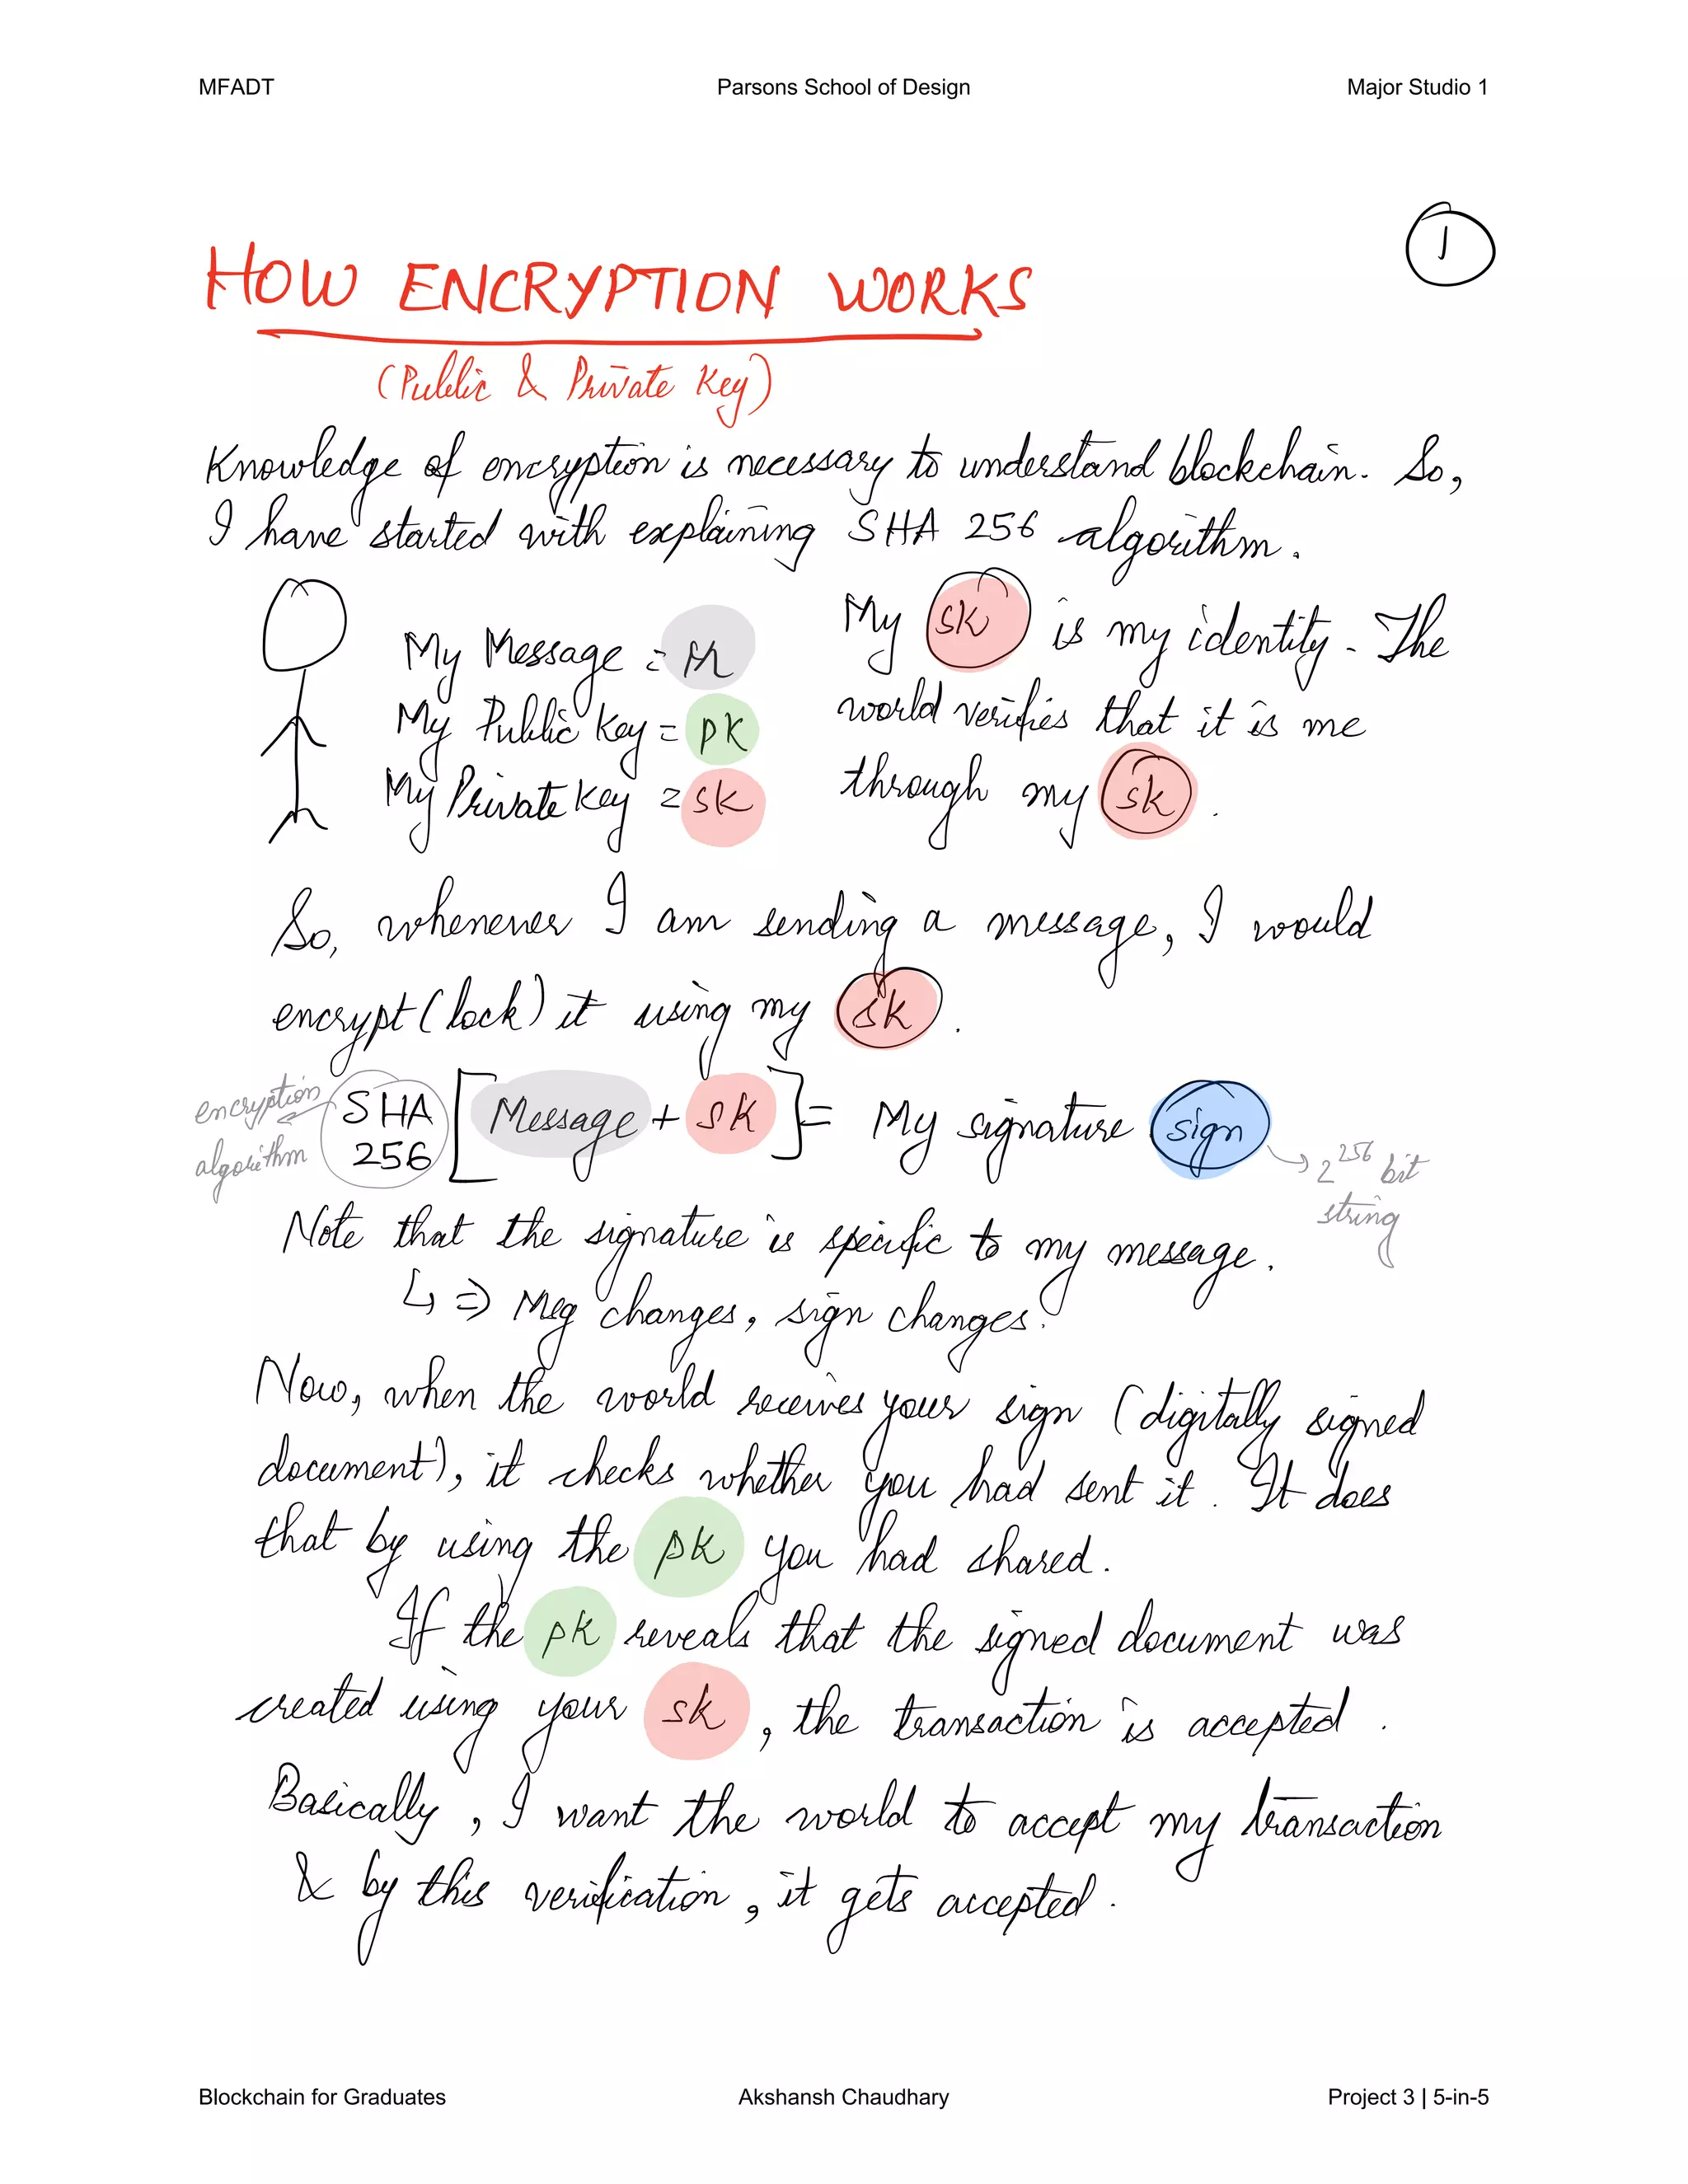 MFADT Parsons School of Design Major Studio 1
1
HOW ENCRYPTION WORKS
(Public & Private Key)
Knowledge of encryption is necessary to understand blockchain. So,
I have started with explaining SHA 256 algorithm.
My Message = M
My Public Key = pk
My Private Key = sk
My sk is my identity. The
world verifies that it is me
through my sk.
So, whenever I am sending a message, I would
encrypt (lock) it using my sk.
encryption algorithm
SHA 256 [Message + sk] = My signature sign
2^256 bit
string
Note that the signature is specific to my message.
↳ ⇒ Msg changes, sign changes.
Now, when the world receives your sign (digitally signed
document), it checks whether you had sent it. It does
that by using the pk you had shared.
If the pk reveals that the signed document was
created using your sk, the transaction is accepted.
Basically, I want the world to accept my transaction
& by this verification, it gets accepted.
Blockchain for Graduates Akshansh Chaudhary Project 3 | 5-in-5